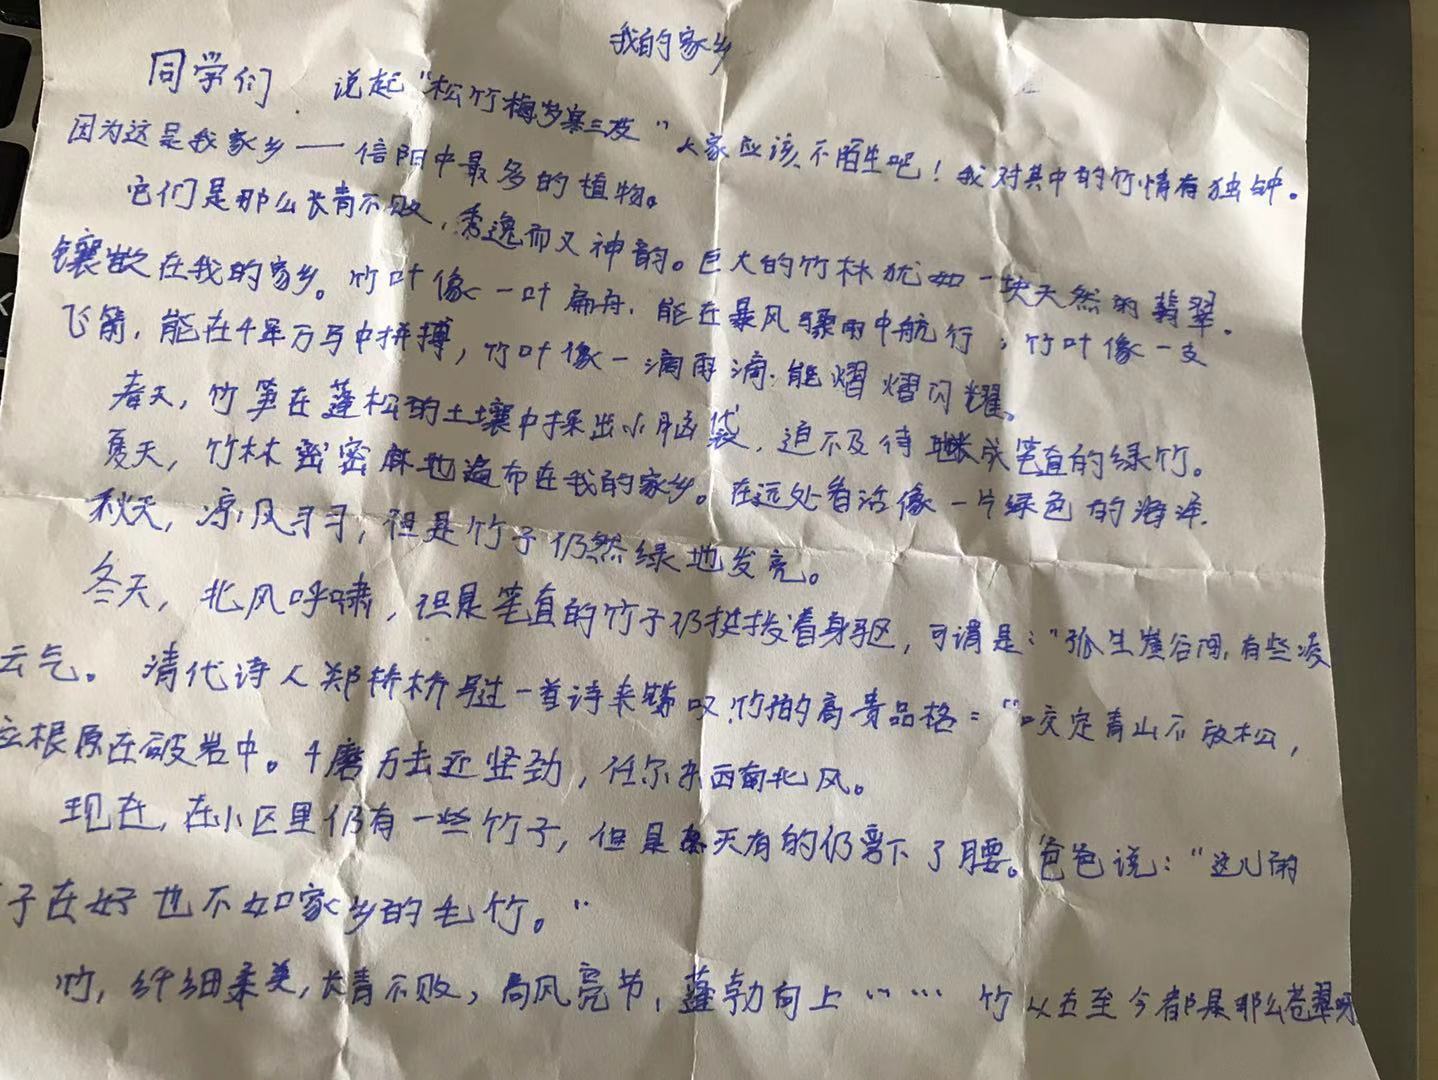 我的家乡
同学们 说起"松竹梅岁寒三友"大家应该不陌生吧！我对其中的竹情有独钟。
因为这是我家乡——信阳中最多的植物。
它们是那么长青不败，秀逸而又神韵。巨大的竹林犹如一块天然的翡翠.
镶嵌在我的家乡。竹叶像一叶扁舟，能在暴风骤雨中航行；竹叶像一支
飞箭，能在千军万马中拼搏，竹叶像一滴雨滴.能熠熠闪耀。
春天，竹笋在蓬松的土壤中探出小脑袋，迫不及待地长成笔直的绿竹。
夏天，竹林密密麻地遍布在我的家乡。在远处看活像一片绿色的海洋.
秋天，凉风习习，但是竹子仍然绿地发亮。
冬天，北风呼啸，但是笔直的竹子仍挺拔着身躯，可谓是："孤生崖谷间，有些凌
云气。 清代诗人郑桥写过一首诗来赞叹竹的高贵品格："咬定青山不放松，
立根原在破岩中。千磨万击还坚劲，任尔东西南北风。
现在，在小区里仍有一些竹子，但是天有的仍弯下了腰。爸爸说："这儿的
子在好也不如家乡的毛竹。"
竹，纤细柔美，长青不败，高风亮节，蓬勃向上…… 竹从古至今都是那么苍翠呀